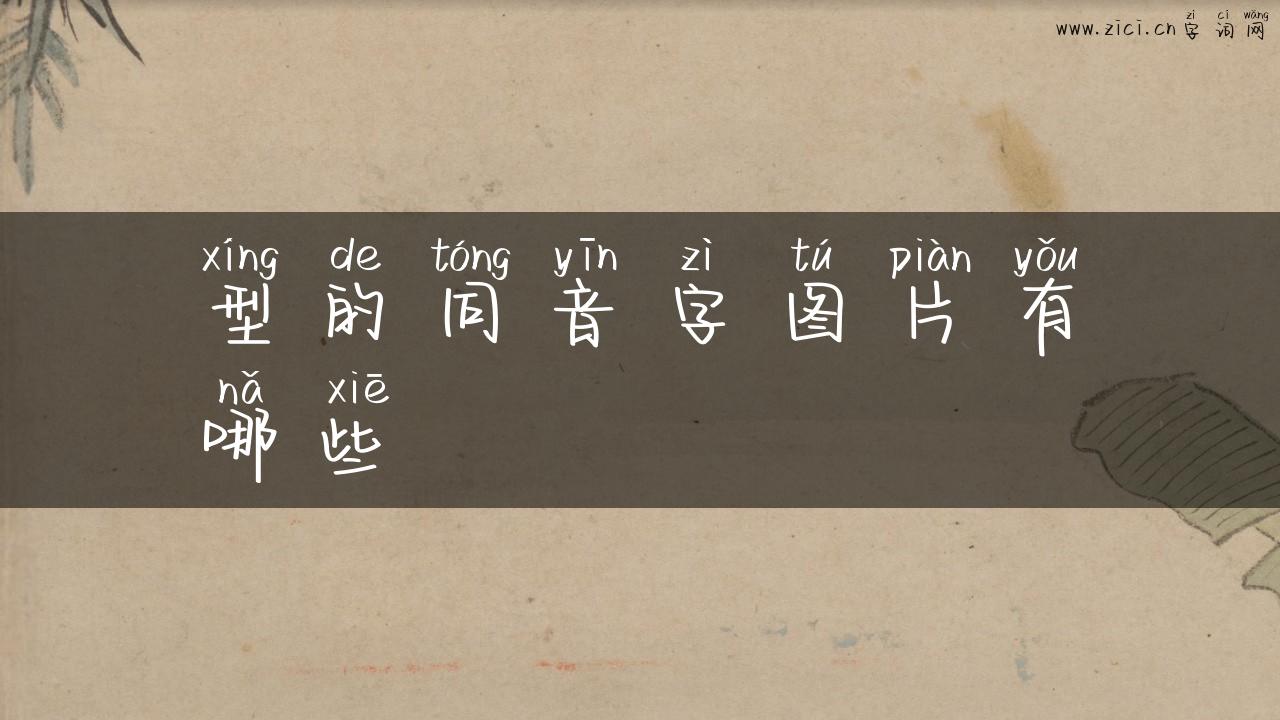 zì cí wǎng
www.zici.cn 字词网
xíng de tóng yīn zì tú piàn yǒu
型的同音字图片有
nǎ xiē
哪些